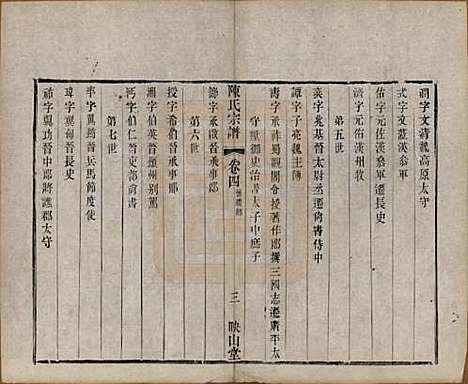 潤字文清魏高原太守
式字文藍漢參軍
佑字元佐漢參軍遷長史
濟字元佑漢州牧
第五世
奕字兆基晉太尉丞遷尚書侍中
譚字子亮魏主簿
壽字承祚蜀觀閣令授著作郎撰三國志遷廣平太
守擢御史治書太子中庶子
陳氏宗譜
卷四
三
映山堂
第六世
錄字承啟晉承事郎
授字希伯晉承事郎
淵字伯英晉穎州別駕
遇字伯仁晉吏部尚書
第七世
率字翼勛晉兵馬節度使
瑋字翼每晉長史
禘字翼功晉中郎將譙郡太守